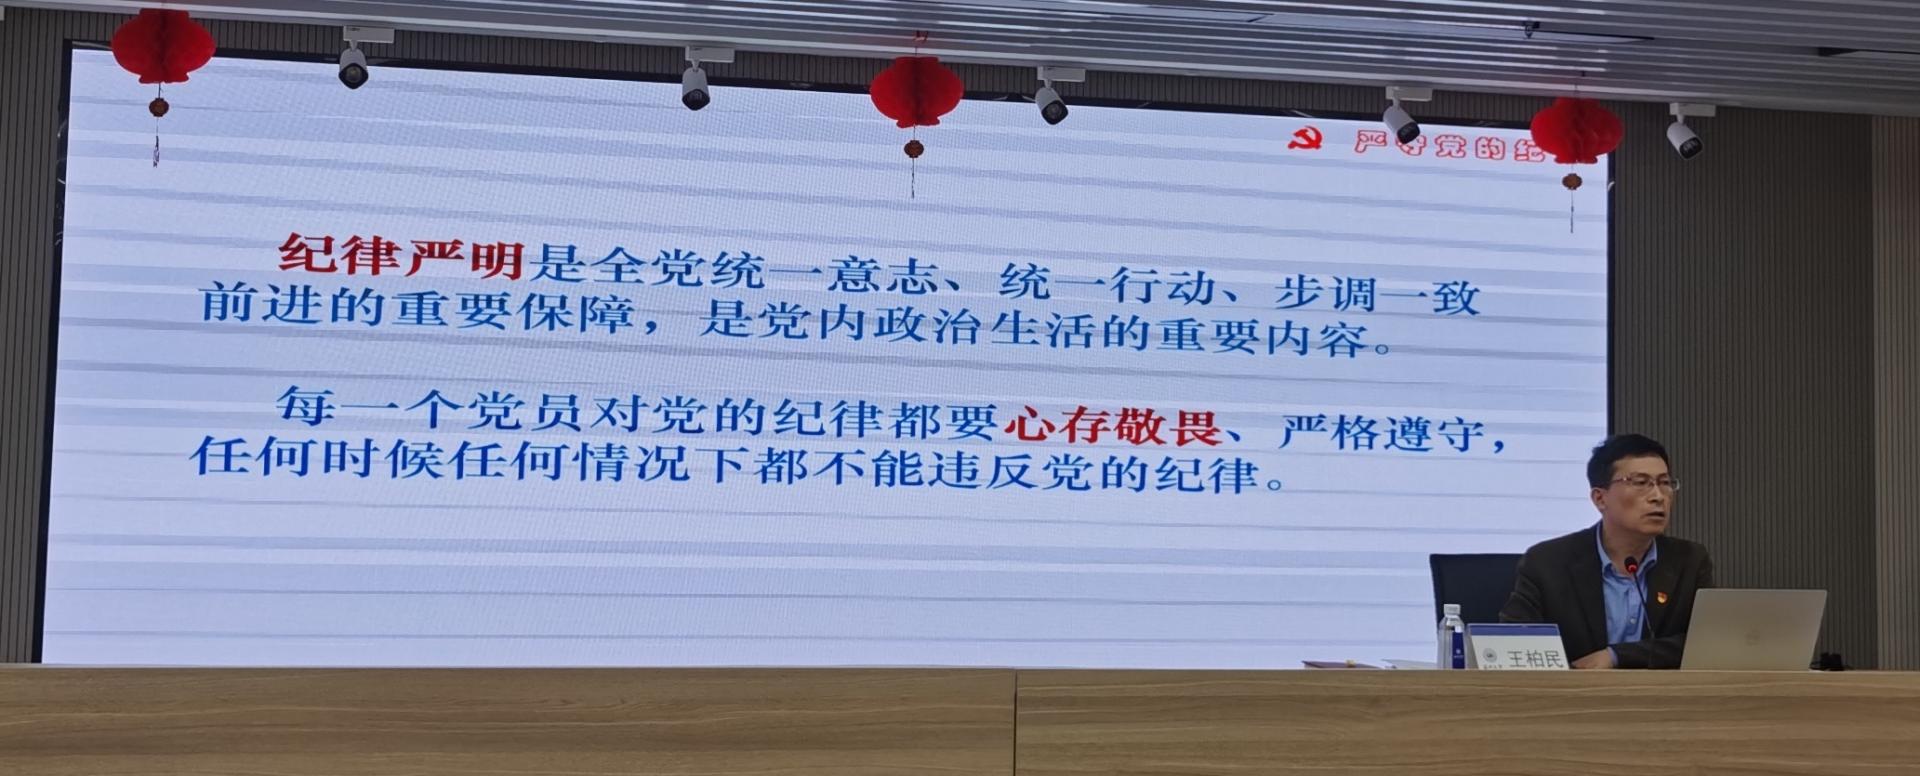 严守党的纪
纪律严明是全党统一意志、统一行动、步调一致
前进的重要保障，是党内政治生活的重要内容。
每一个党员对党的纪律都要心存敬畏、严格遵守，
任何时候任何情况下都不能违反党的纪律。
王柏民